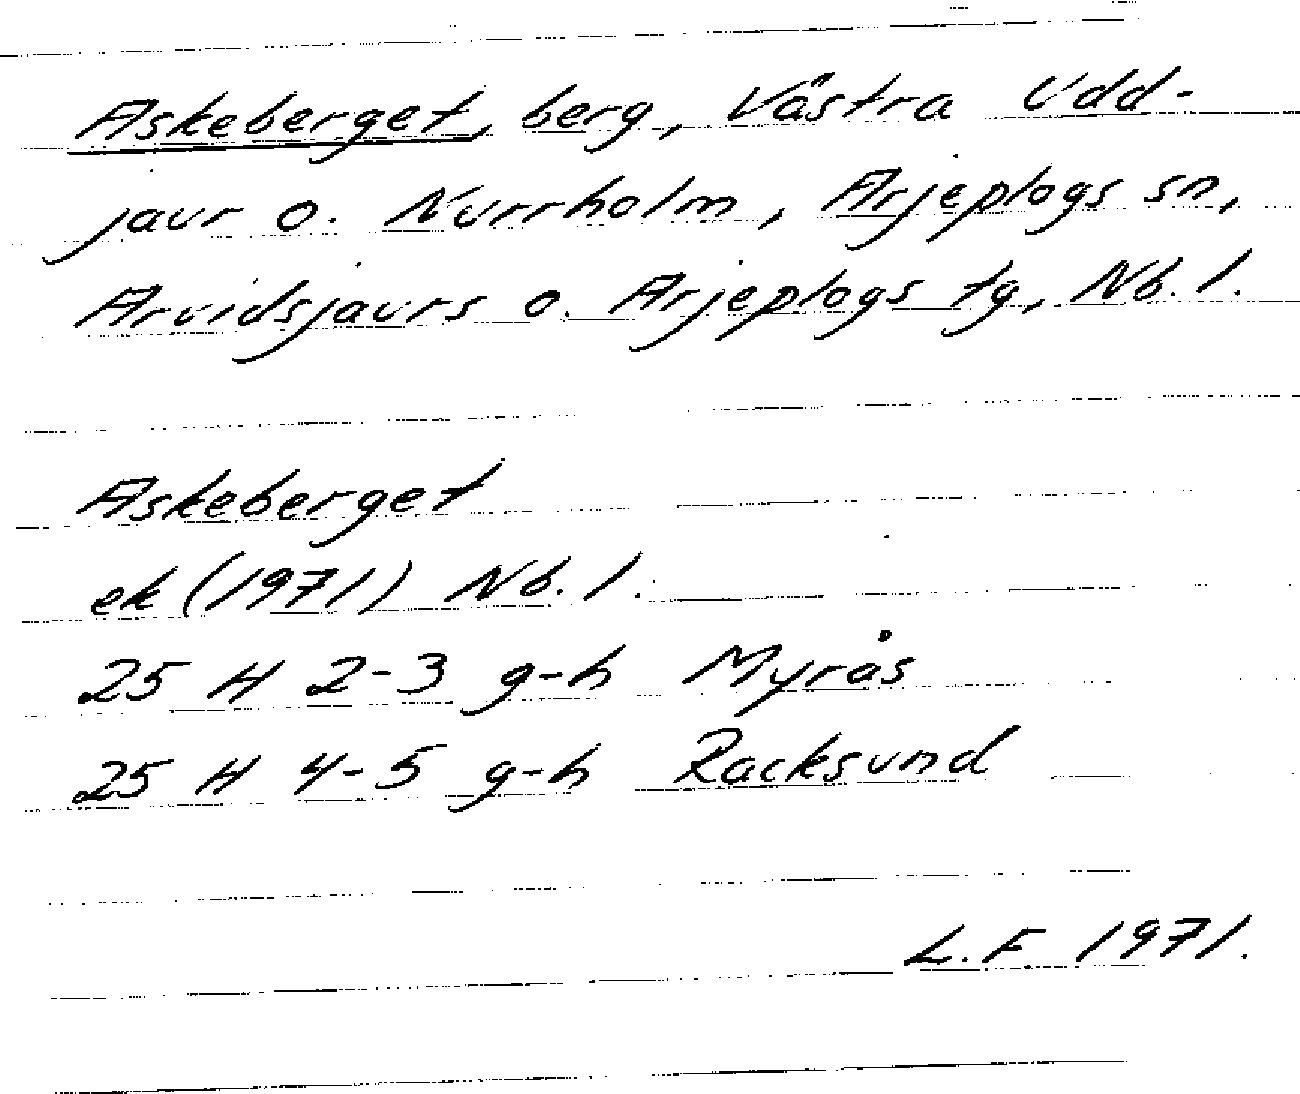 Askeberget, berg, Västra Udd-
jaur o. Nurrholm, Arjeplogs sn,
Arvidsjaurs o. Arjeplogs tg, Nb. l.
Askeberget
ek (1971) Nb. l.
25 H 2-3 g-h Myrås
25 H 4-5 g-h Racksund
L. F 1971.